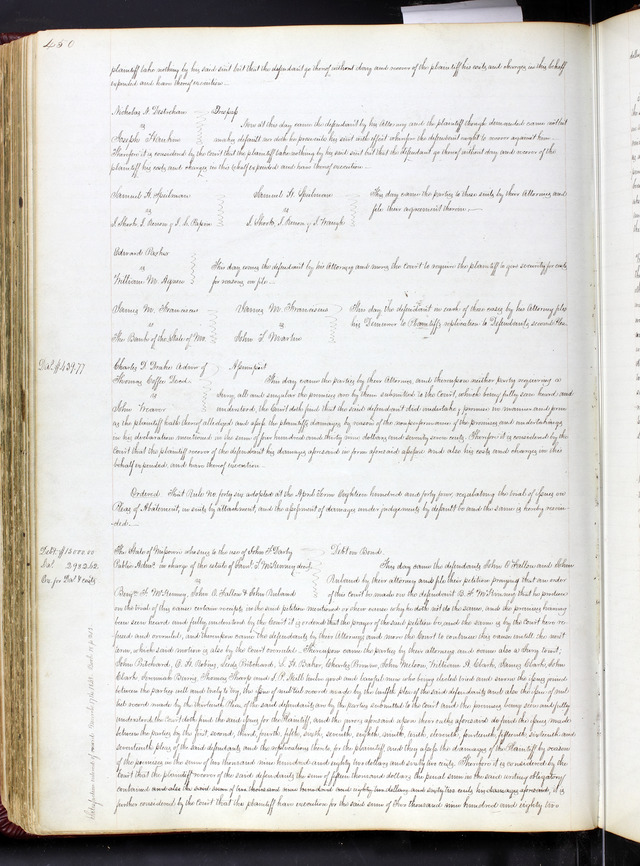 450
plaintiff take nothing by his said suit but that the defendant go thereof without day and recover of the plaintiff his costs and charges in this behalf
expended and have thereof execution.
Nicholas A. Trespass
vs Now at this day came the defendant by his Attorney and the plaintiff though demanded came not but
Joseph makes default nor doth he prosecute his suit with effect wherefore the defendant ought to recover against him.
Therefore it is considered by the Court that the plaintiff take nothing by his said suit but that the defendant go thereof without day and recover of the
plaintiff his costs and charges in this behalf expended and have thereof execution.
Samuel H. Spilman Samuel H. Spilman This day came the parties to these suits by their Attornies and
vs vs file their agreement therein.
Edward
vs This day comes the defendant by his Attorney and moves the Court to require the plaintiff to give security for costs
William M. for reasons on file.
James M. Franciscus James M. Franciscus This day the defendant in each of these cases by his Attorney files
vs vs his Demurrer to Plaintiffs replication to Defendants second Plea
The Bank of the State of Mo. John T. Martin
Dal. $439.77
Charles D. Drake Admr of Assumpsit
Thomas Coffee Decd. This day came the parties by their Attornies, and thereupon neither party requiring a
vs Jury, all and singular the premises are by them submitted to the Court, which being fully seen heard and
John Weaver understood, the Court doth find that the said defendant did undertake & promise in manner and form
as the plaintiff hath thereof alledged and assess the plaintiffs damages by reason of the nonperformance of the promises and undertakings
in his declaration mentioned in the sum of four hundred and thirty nine dollars and seventy seven cents. Therefore it is considered by the
Court that the plaintiff recover of the defendant his damages aforesaid in form aforesaid assessed and also his costs and charges in this
behalf expended, and have thereof execution.
Ordered. That Rule No forty six adopted at the April Term Eighteen hundred and forty four, regulating the trial of issues on
Pleas of Abatement, in suits by attachment, and the assessment of damages under judgements by default be and the same is hereby rescin-
ded.
Debt $15000.00
Dal. 2982.62
Ex. for Dal & costs
The State of Missouri who sues to the use of John F. Darby Debt on Bond.
Public Admr. in charge of the estate of decd. This day came the defendants John O'Fallon and John
vs Ruland by their attorney and file their petition praying that an order
John O'Fallon & John Ruland of this Court be made on the defendant that he produce
on the trial of this cause certain receipts in the said petition mentioned or shew cause why he doth not do the same, and the premises having
been seen heard and fully understood by the Court it is ordered that the prayer of the said petition be and the same is by the Court here re-
fused and overruled, and thereupon came the defendants by their Attorneys and move the Court to continue this cause until the next
term, which said motion is also by the Court overruled. Thereupon came the parties by their attorneys and came also a Jury to wit:
John Pritchard, Charles Brown, John Nelson, William A. Clark, James Clark, John
Clark, Thomas Thorp and twelve good and lawful men who being elected tried and sworn the issues joined
between the parties well and truly to try, the issue of nul tiel record made by the twelfth plea of the said defendants and also the issue of nul
tiel record made by the thirteenth Plea of the said defendants are by the parties submitted to the Court and the premises being seen and fully
understood, the Court doth find the said issues for the Plaintiff, and the jurors aforesaid upon their oaths aforesaid do find the issues made
between the parties by the first, second, third, fourth, fifth, sixth, seventh, eighth, ninth, tenth, eleventh, fourteenth, fifteenth, sixteenth and
seventeenth pleas of the said defendants and the replications thereto, for the plaintiff, and they assess the damages of the Plaintiff by reason
of the premises in the sum of two thousand nine hundred and eighty two dollars and sixty two cents. Therefore it is considered by the
Court that the plaintiff recover of the said defendants the sum of fifteen thousand dollars the penal sum in the said writing obligatory
contained and also the said sum of two thousand nine hundred and eighty two dollars and sixty two cents, his damages aforesaid, & it is
further considered by the Court that the plaintiff have execution for the said sum of Two thousand nine hundred and eighty two